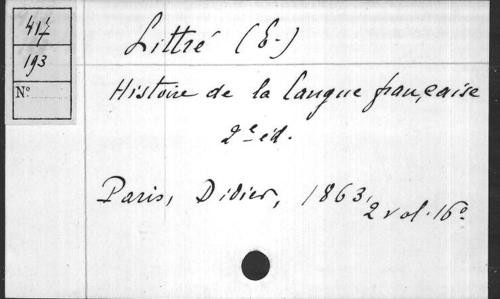 417
193
N°
Littré (E.)
Histoire de la langue française
2e éd.
Paris, Didier, 1863,
2 vol. 16°